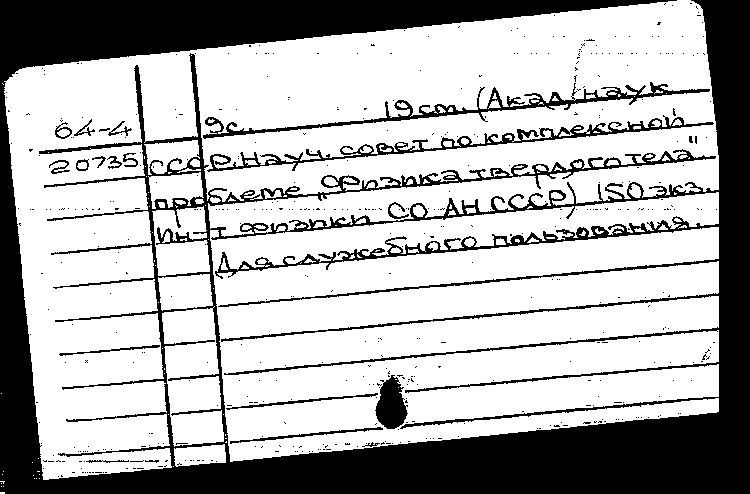 64-4 9с. 19 см. (Акад. наук
20735 СССР. Науч. совет по комплексной
проблеме „Физика твердого тела"
Ин-т физики СО АН СССР) 150 экз.
Для служебного пользования.